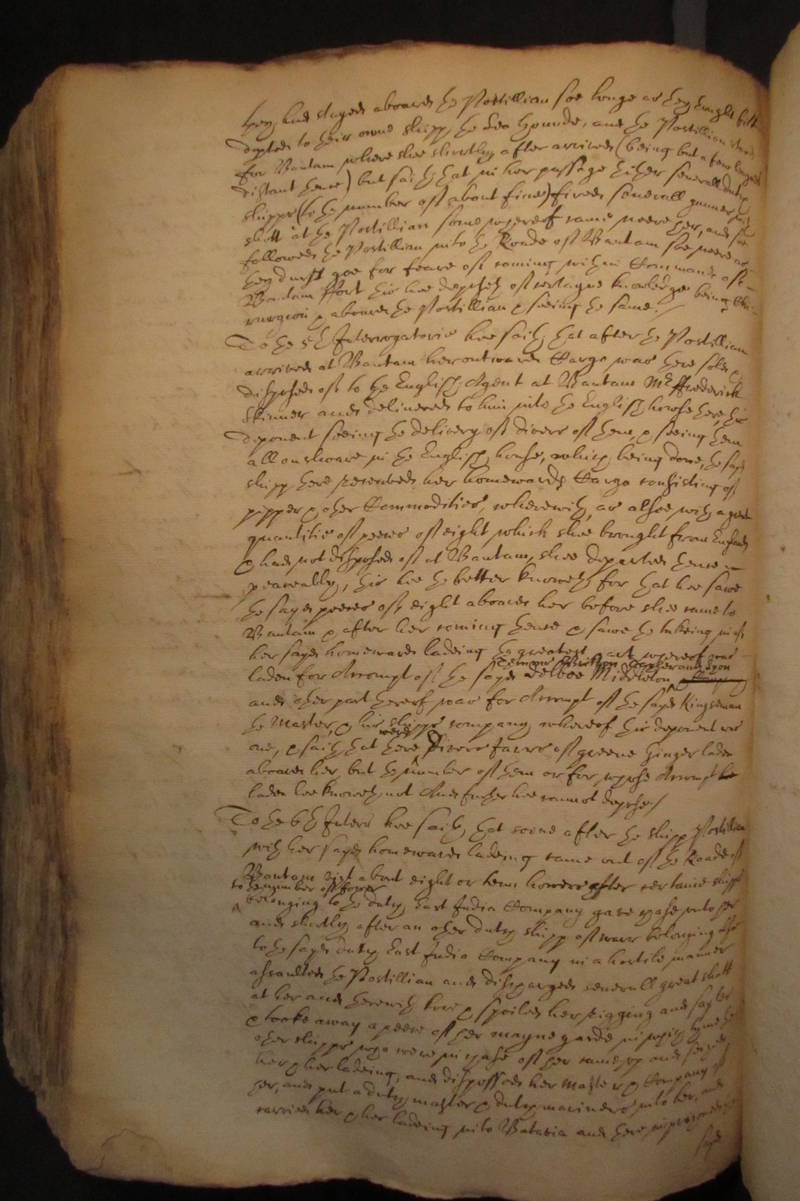 they had stayed aboard the Postillian soe longe as they thought fitt
departed to their owne shipp the Sea hounde, and the Postillian
for Bantam where shee shortly after arrived (being but a few leagues
distant thence) but saith that in her passage thither severall dutch
shipps (to the number of about five) fired severall gunnes
shott at the Postillian some whereof came neere her, and soe
followed the Postillian into the Roade of Bantam soe neere as
they durst goe for feare of coming within Command of
Bantam ffort this hee deposeth of certayne knowledge being
aboard the Postillian & seeing the same./
To the 5th Interrogatorie hee saith that after the Postillian
arrived at Bantam her outwards Cargo was there sold &
disposed of to the English Agent at Bantam Mr ffrederick
Skinner and delivered to him into the English house there, this
deponent seeing the delivery of divers of them & seeing them
all on shoare in the English house, which being done, the sayd
shipp there received her homewards Cargo consisting of
pepper & other Commodities, wherewith as alsoe with a greate
quantitie of peeces of eight which shee brought from England
& had not disposed of at Bantam, shee departed thence
peaceably, this hee the better knoweth for that hee sawe
the sayd peeces of eight aboard her before shee came to
Bantam & after her coming thence & sawe the takeing in of
her sayd homewards ladeing the greatest part whereof was
laden for Accompt of the sayd Middleton
and other part thereof was for Accompt of the sayd Kingsman
the Master, & his shipps company whereof this deponent was
one, & saith that there were divers Jarrs of greene Ginger laden
aboard her, but the number of them or for whose Accompt
laden hee knoweth not And further hee cannot depose/
To the 6th Interr hee saith that soone after the shipp Postillian
with her sayd homewards ladeing came out of the Roade of
Bantam vizt about eight or tenn howers after certaine shipps
to the number of fower
belonging to the dutch East India Company gave chase unto her
and shortly after an other dutch shipp of warr belonging
to the sayd dutch East India Company in a hostile manner
assaulted the Postillian and discharged severall great shott
at her and therewith tore & spoiled her rigging and sayles
& tooke away a peece of her mayne yarde in which tyme the
other shipps who were in chase of her came up and seized
her & her ladeing, and dispossed her Master & Company of
her, and put a dutch master & dutch mariners into her, and
carried her & her ladeing into Batavia and there
sayd